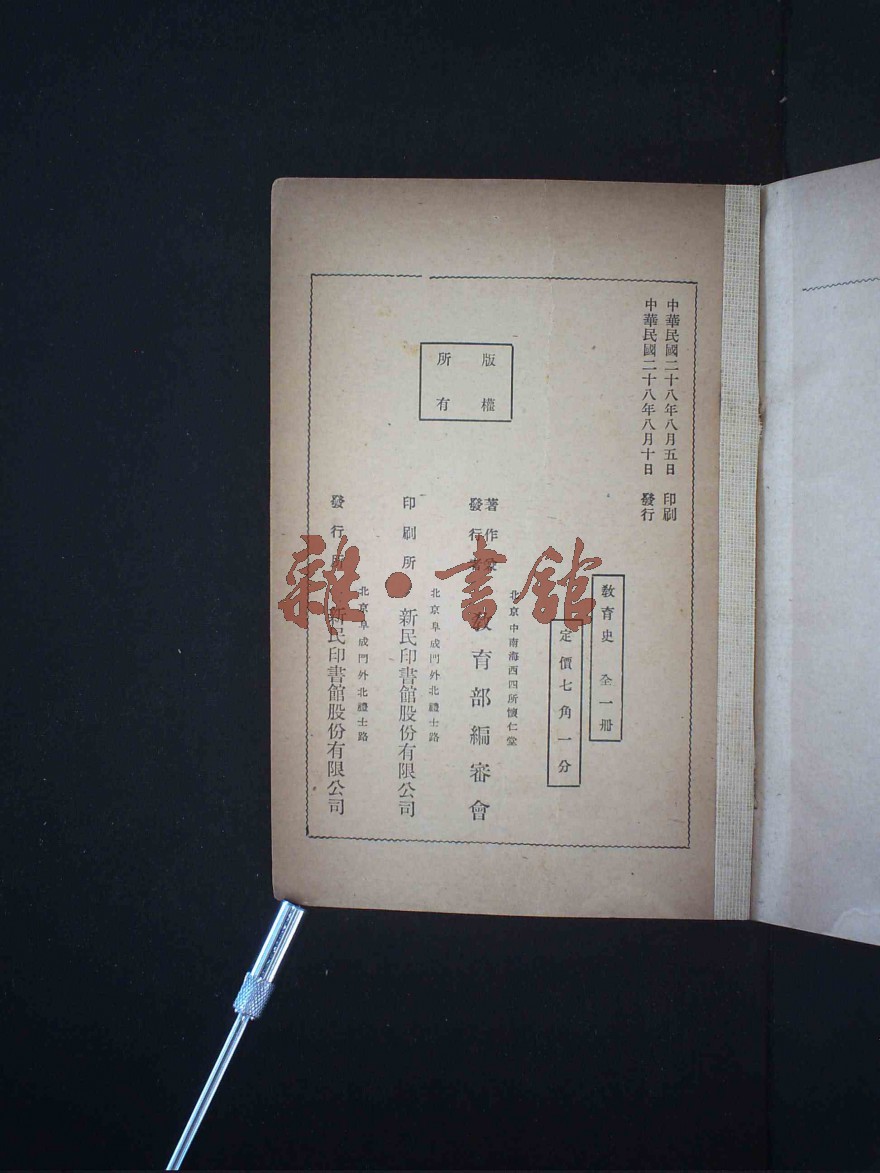 中華民國二十八年八月五日 印刷
中華民國二十八年八月十日 發行
教育史 全一冊
定價七角一分
北京中南海西四所懷仁堂
著作兼
發行者
教育部編審會
版權
所有
北京阜成門外北禮士路
印刷所 新民印書館股份有限公司
北京阜成門外北禮士路
發行所 新民印書館股份有限公司
雜·書館